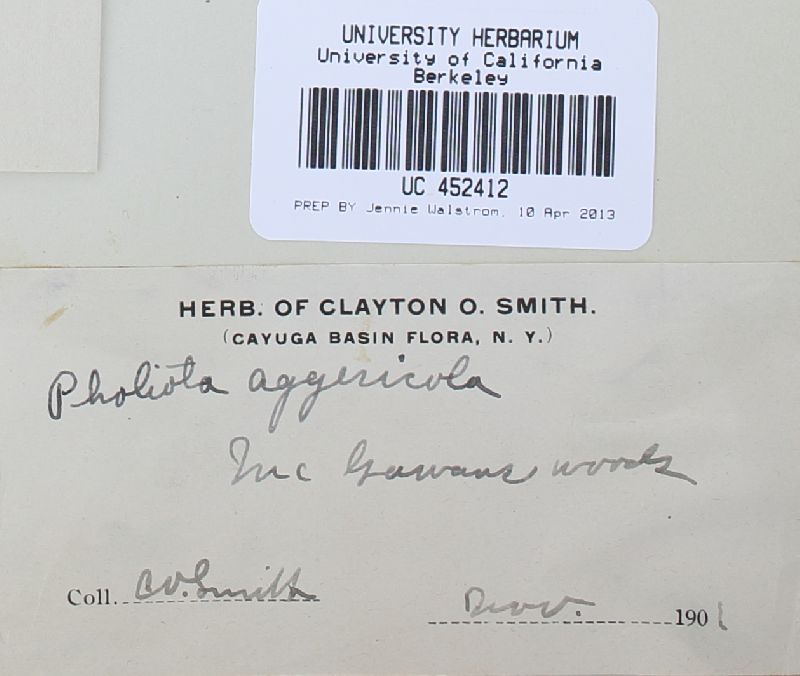 UNIVERSITY HERBARIUM
University of California
Berkeley
UC 452412
PREP BY Jennie Walstrom, 10 Apr 2013
HERB. OF CLAYTON O. SMITH.
(CAYUGA BASIN FLORA, N. Y.)
Pholiota aggericola
Mc Gowans woods
Coll. C.O. Smith
Nov. 1901